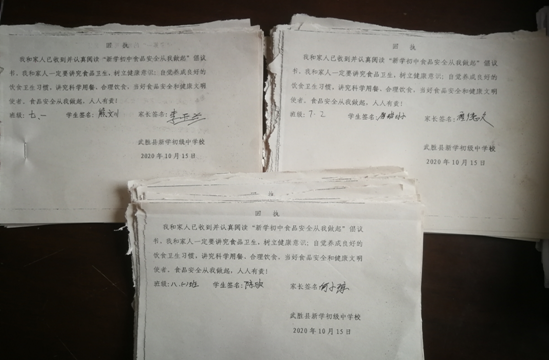 回 执
我和家人已收到并认真阅读“新学初中食品安全从我做起”倡议
书，我和家人一定要讲究食品卫生，树立健康意识；自觉养成良好的
饮食卫生习惯，讲究科学用餐、合理饮食，当好食品安全和健康文明
使者，食品安全从我做起，人人有责！
班级：七.一 学生签名： 家长签名：
武胜县新学初级中学校
2020 年 10 月 15 日
回 执
我和家人已收到并认真阅读“新学初中食品安全从我做起”倡议
书，我和家人一定要讲究食品卫生，树立健康意识；自觉养成良好的
饮食卫生习惯，讲究科学用餐、合理饮食，当好食品安全和健康文明
使者，食品安全从我做起，人人有责！
班级：7.2 学生签名： 家长签名：
武胜县新学初级中学校
2020 年 10 月 15 日
回 执
我和家人已收到并认真阅读“新学初中食品安全从我做起”倡议
书，我和家人一定要讲究食品卫生，树立健康意识；自觉养成良好的
饮食卫生习惯，讲究科学用餐、合理饮食，当好食品安全和健康文明
使者，食品安全从我做起，人人有责！
班级： 学生签名： 家长签名：
武胜县新学初级中学校
2020 年 10 月 15 日